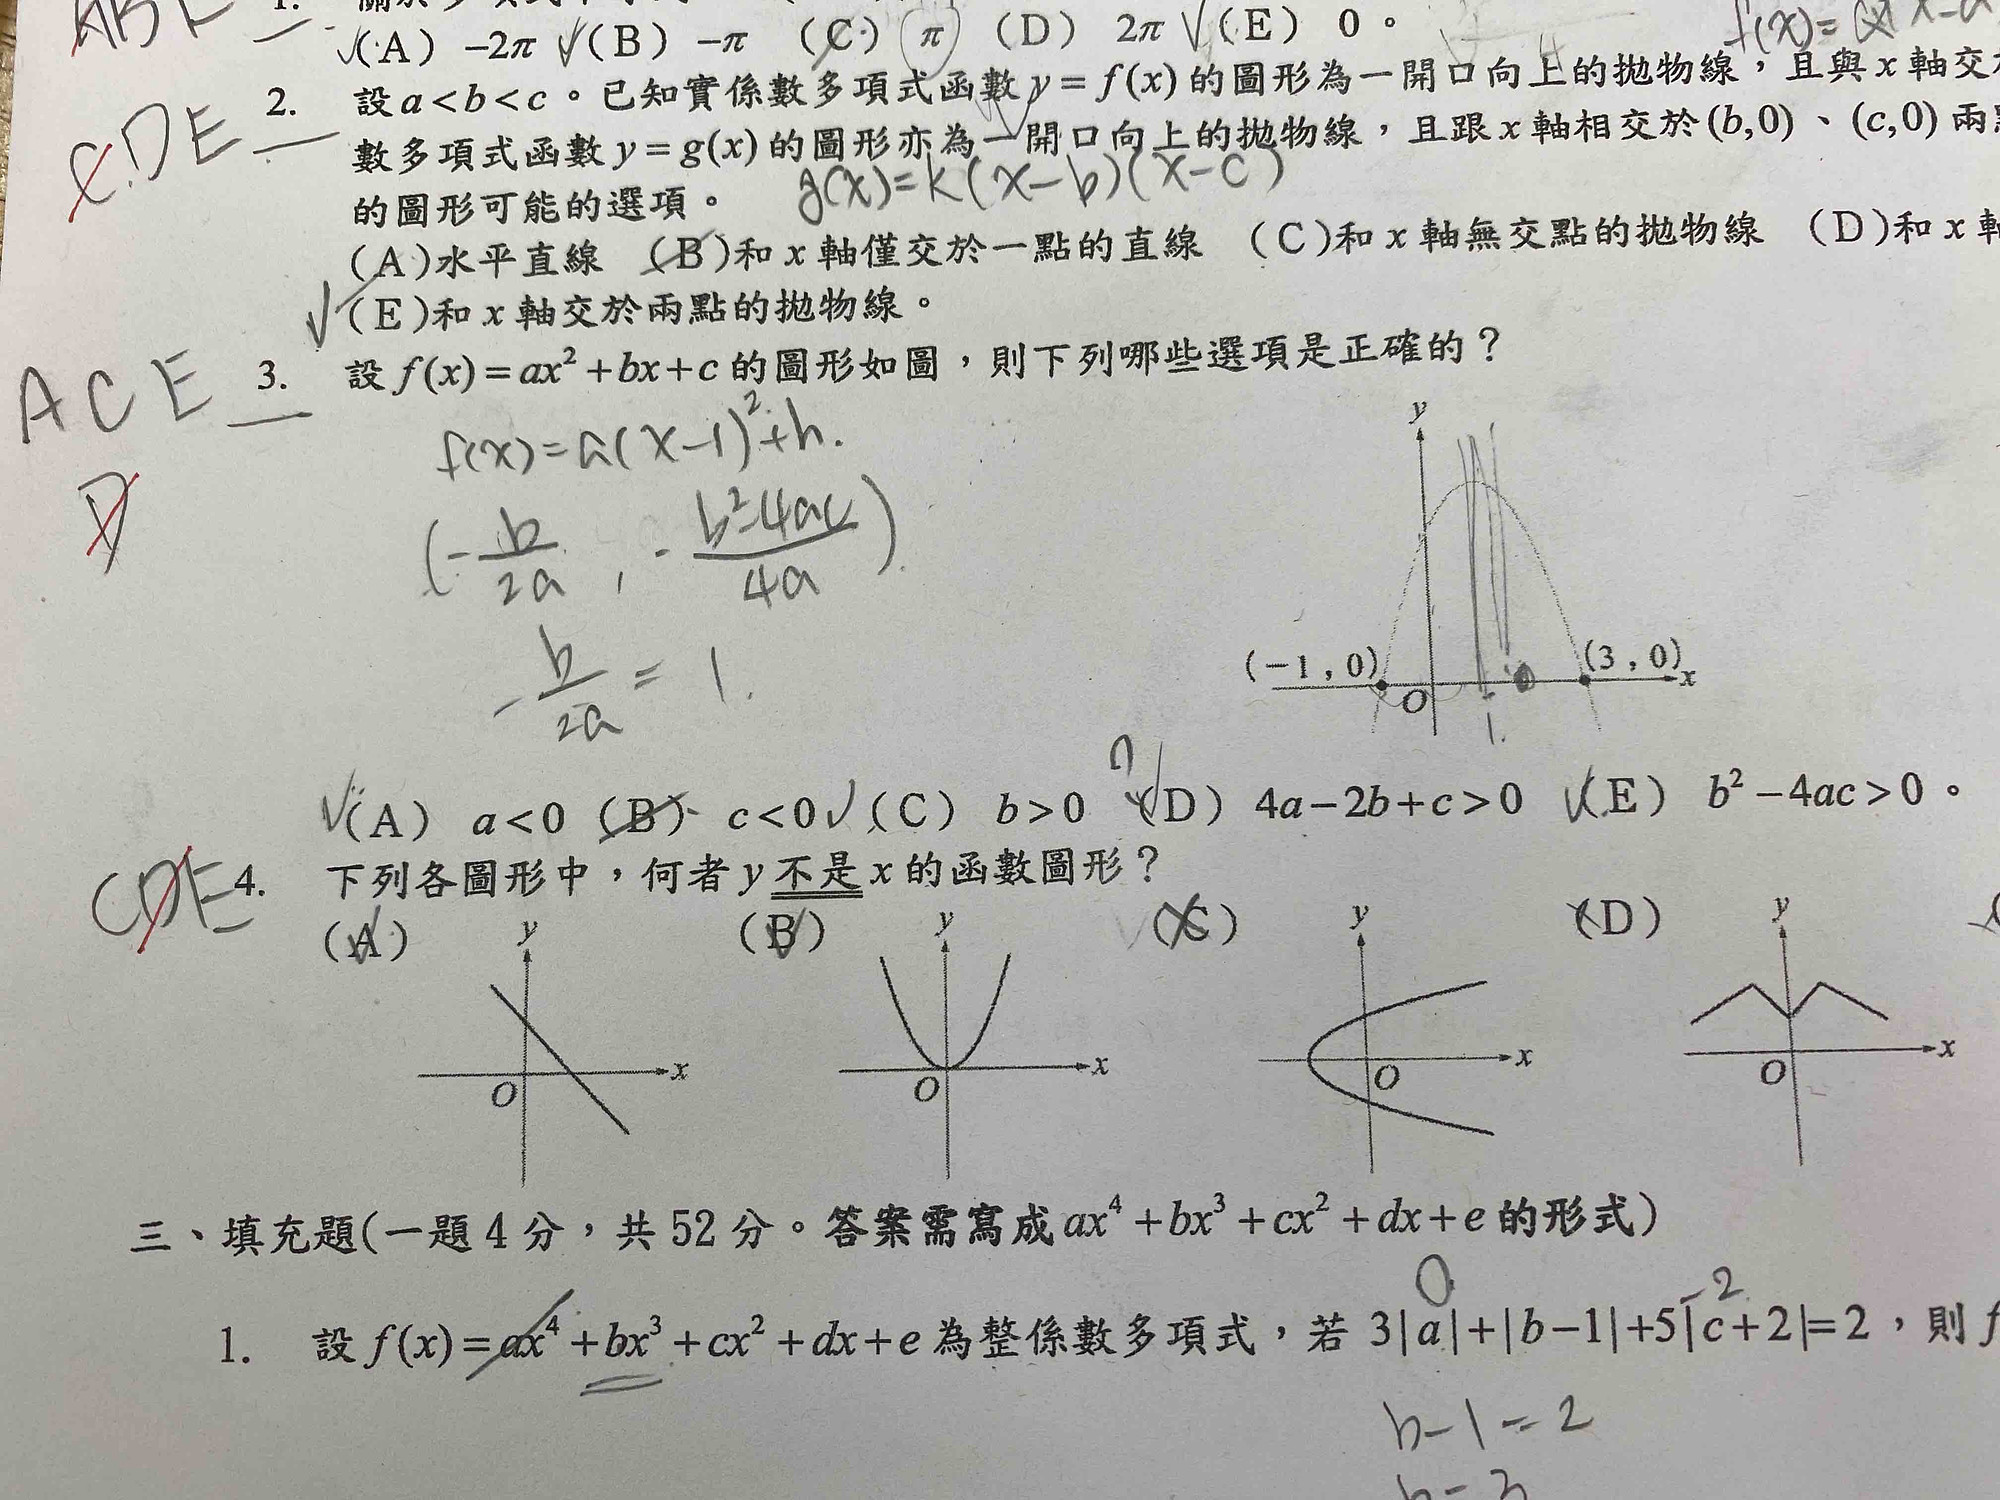 1.
(A) −2π (B) −π (C) π (D) 2π (E) 0。
f(x)=
CDE 2. 設 a<b<c。已知實係數多項式函數 y=f(x) 的圖形為一開口向上的拋物線，且與 x 軸交
數多項式函數 y=g(x) 的圖形亦為一開口向上的拋物線，且跟 x 軸相交於 (b,0)、(c,0) 兩
的圖形可能的選項。 g(x)=k(x−b)(x−c)
(A)水平直線 (B)和 x 軸僅交於一點的直線 (C)和 x 軸無交點的拋物線 (D)和 x 軸
(E)和 x 軸交於兩點的拋物線。
ACE 3. 設 f(x)=ax²+bx+c 的圖形如圖，則下列哪些選項是正確的？
D
f(x)=a(x−1)²+h.
(−b/2a , −(b²−4ac)/4a)
−b/2a = 1.
y
(−1,0) (3,0) x
O 1.
(A) a<0 (B) c<0 (C) b>0 ? (D) 4a−2b+c>0 (E) b²−4ac>0。
CDE 4. 下列各圖形中，何者 y 不是 x 的函數圖形？
(A) y (B) y (C) y (D) y
O x O x O x O x
三、填充題(一題 4 分，共 52 分。答案需寫成 ax⁴+bx³+cx²+dx+e 的形式)
0 −2
1. 設 f(x)=ax⁴+bx³+cx²+dx+e 為整係數多項式，若 3|a|+|b−1|+5|c+2|=2，則 f
b−1=2
b=3